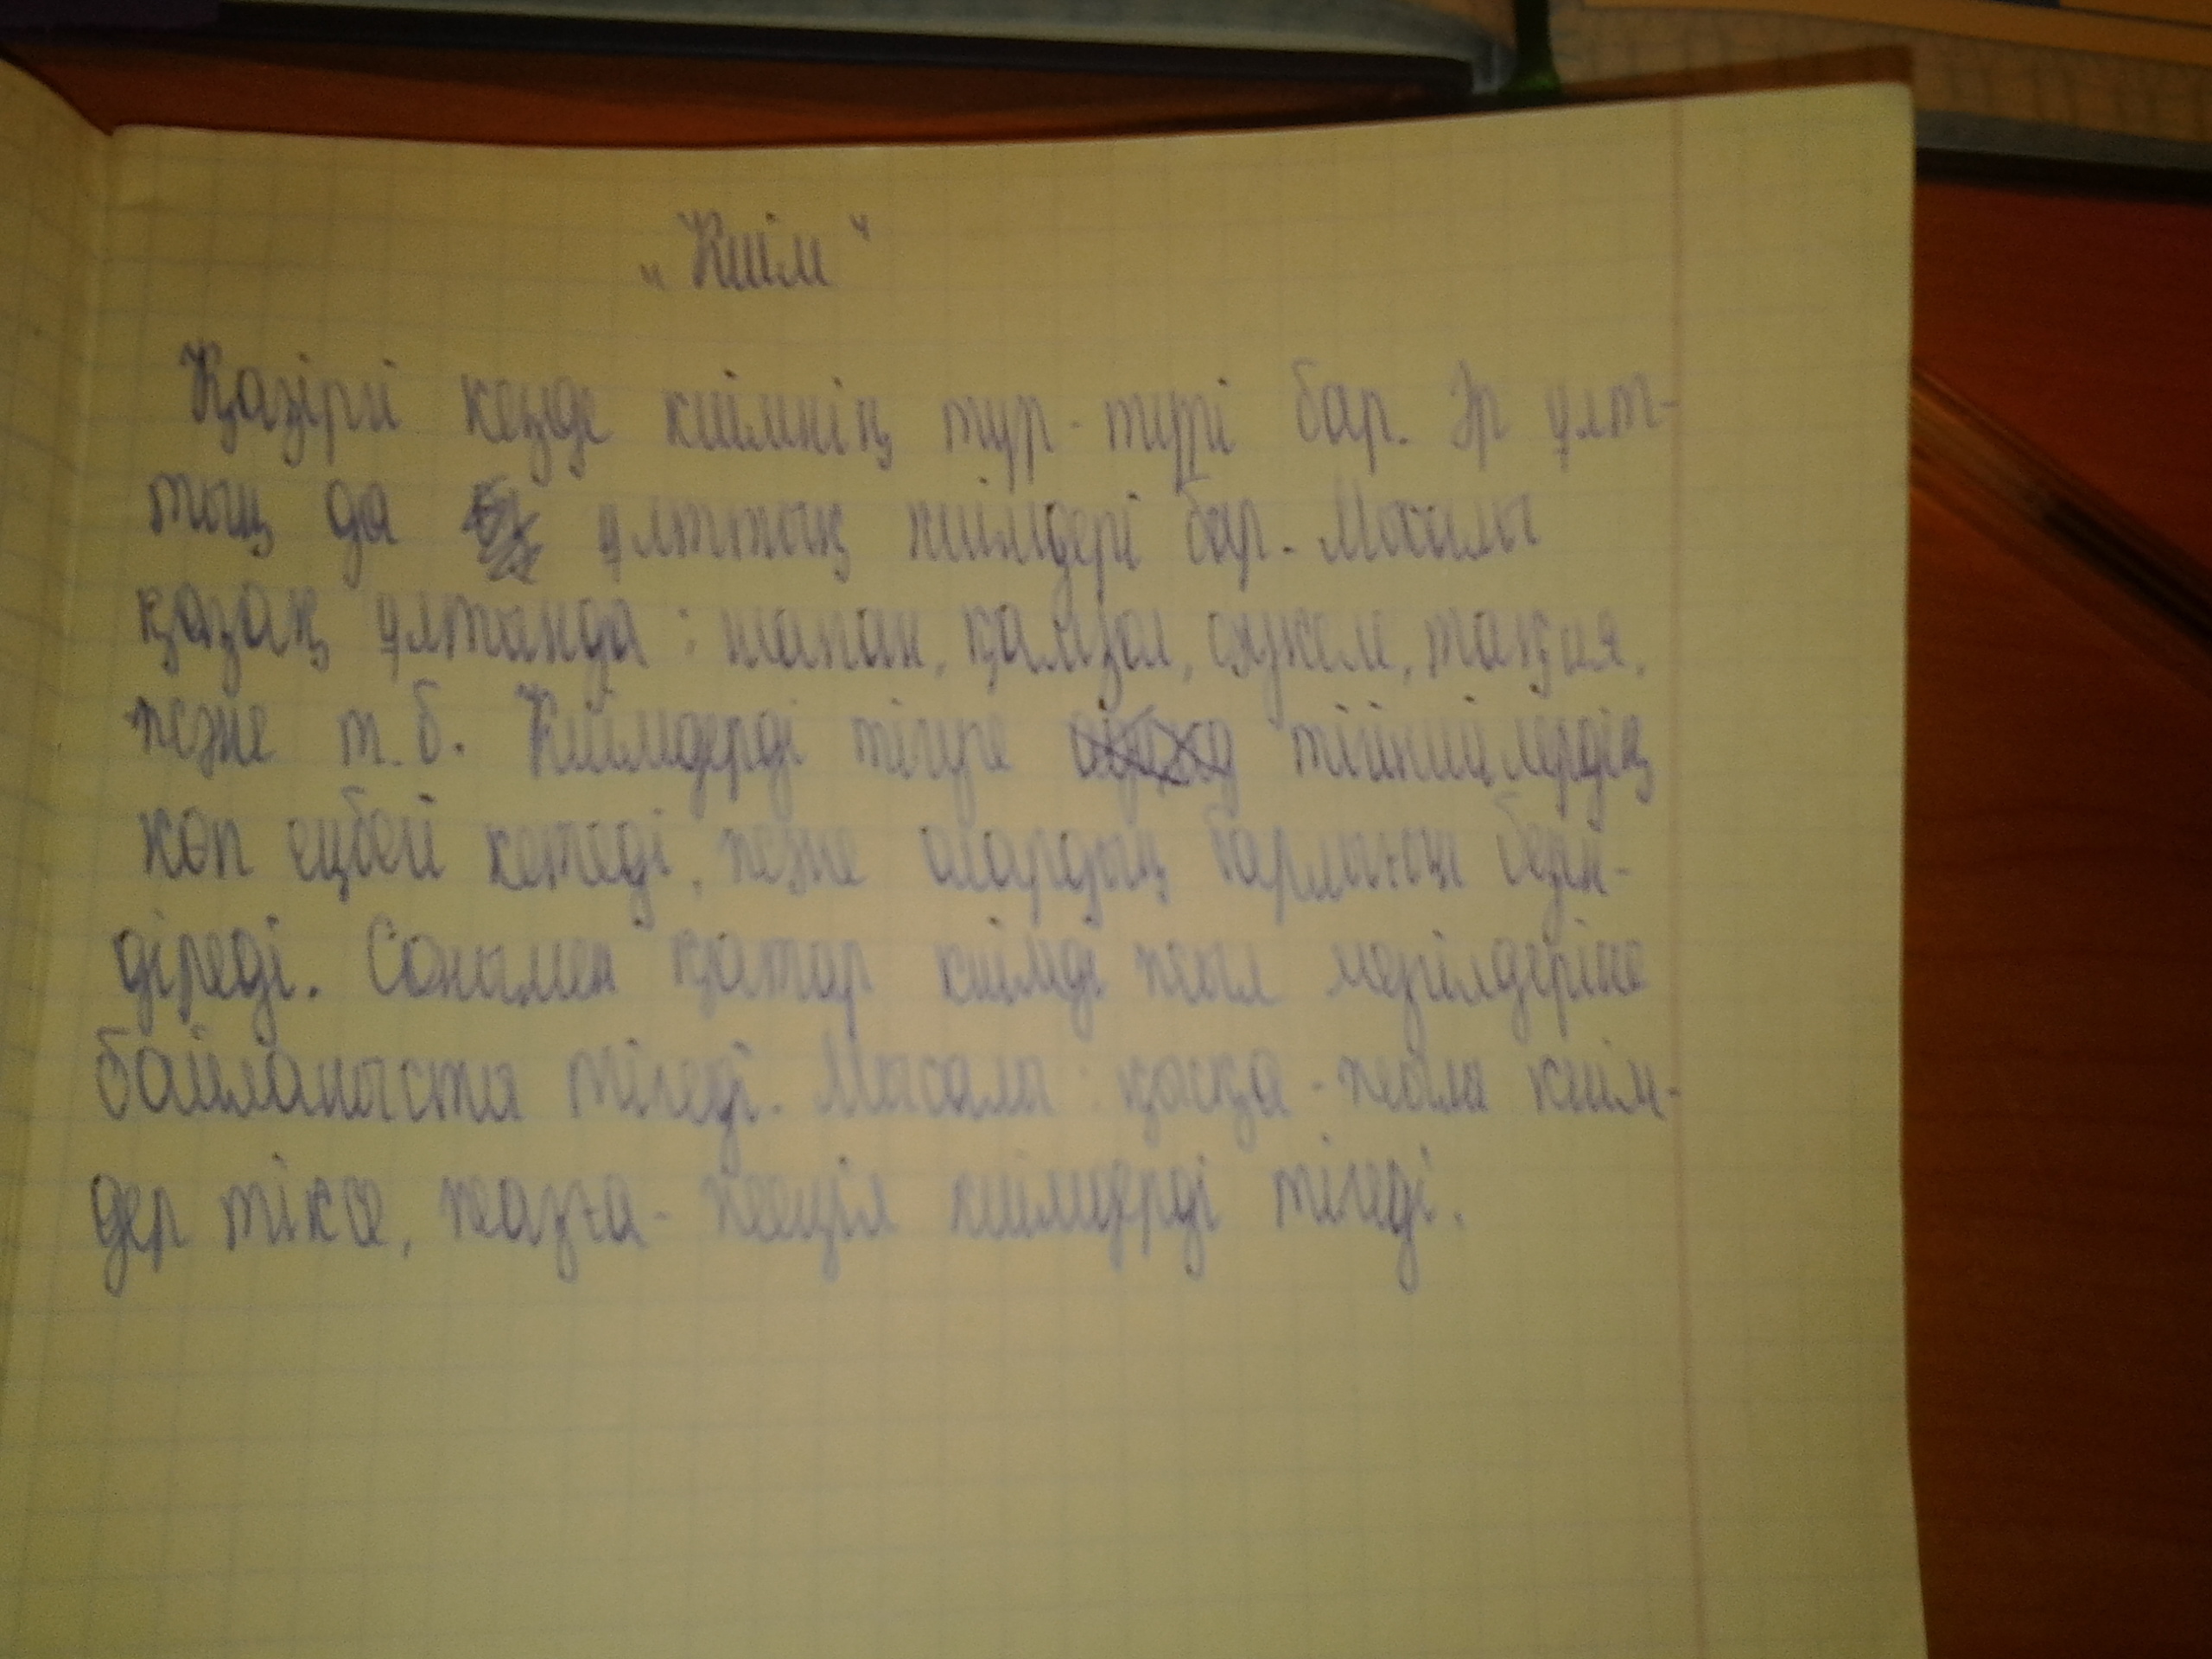 „Киім"
Қазіргі кезде киімнің түр-түрі бар. Әр ұлт-
тың да ұлттық киімдері бар. Мысалы
қазақ ұлтында: шапан, қамзол, сәукеле, тақия,
және т.б. Киімдерді тігуге тігіншілердің
көп еңбегі кетеді, және олардың барлығы безен-
діреді. Сонымен қатар киімді жыл мезгілдеріне
байланысты тігеді. Мысалы: қысқа - жылы киім-
дер тіксе, жазға - жеңіл киімдерді тігеді.